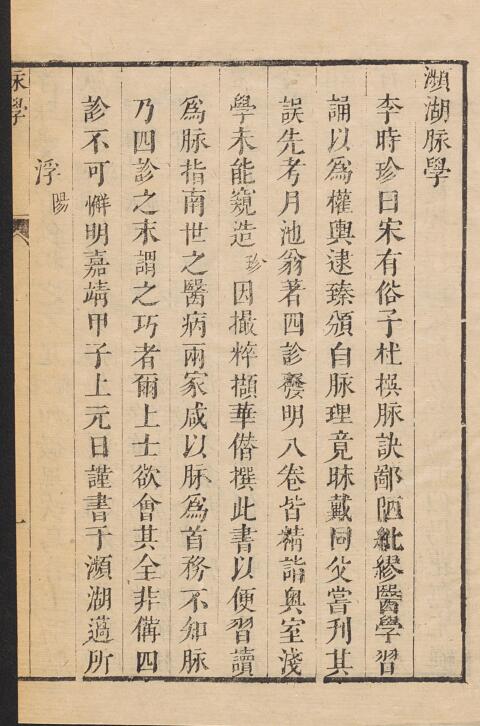 瀕湖脉學
李時珍曰宋有俗子杜撰脉訣鄙陋紕繆醫學習
誦以爲權輿逮臻頒白脉理竟昧戴同父嘗刋其
誤先考月池翁著四診發明八卷皆精詣奧室淺
學未能窺造珍因撮粹擷華僭撰此書以便習讀
爲脉指南世之醫病兩家咸以脉爲首務不知脉
乃四診之末謂之巧者爾上士欲會其全非備四
診不可明嘉靖甲子上元日謹書于瀕湖薖所
浮陽
脉學
一